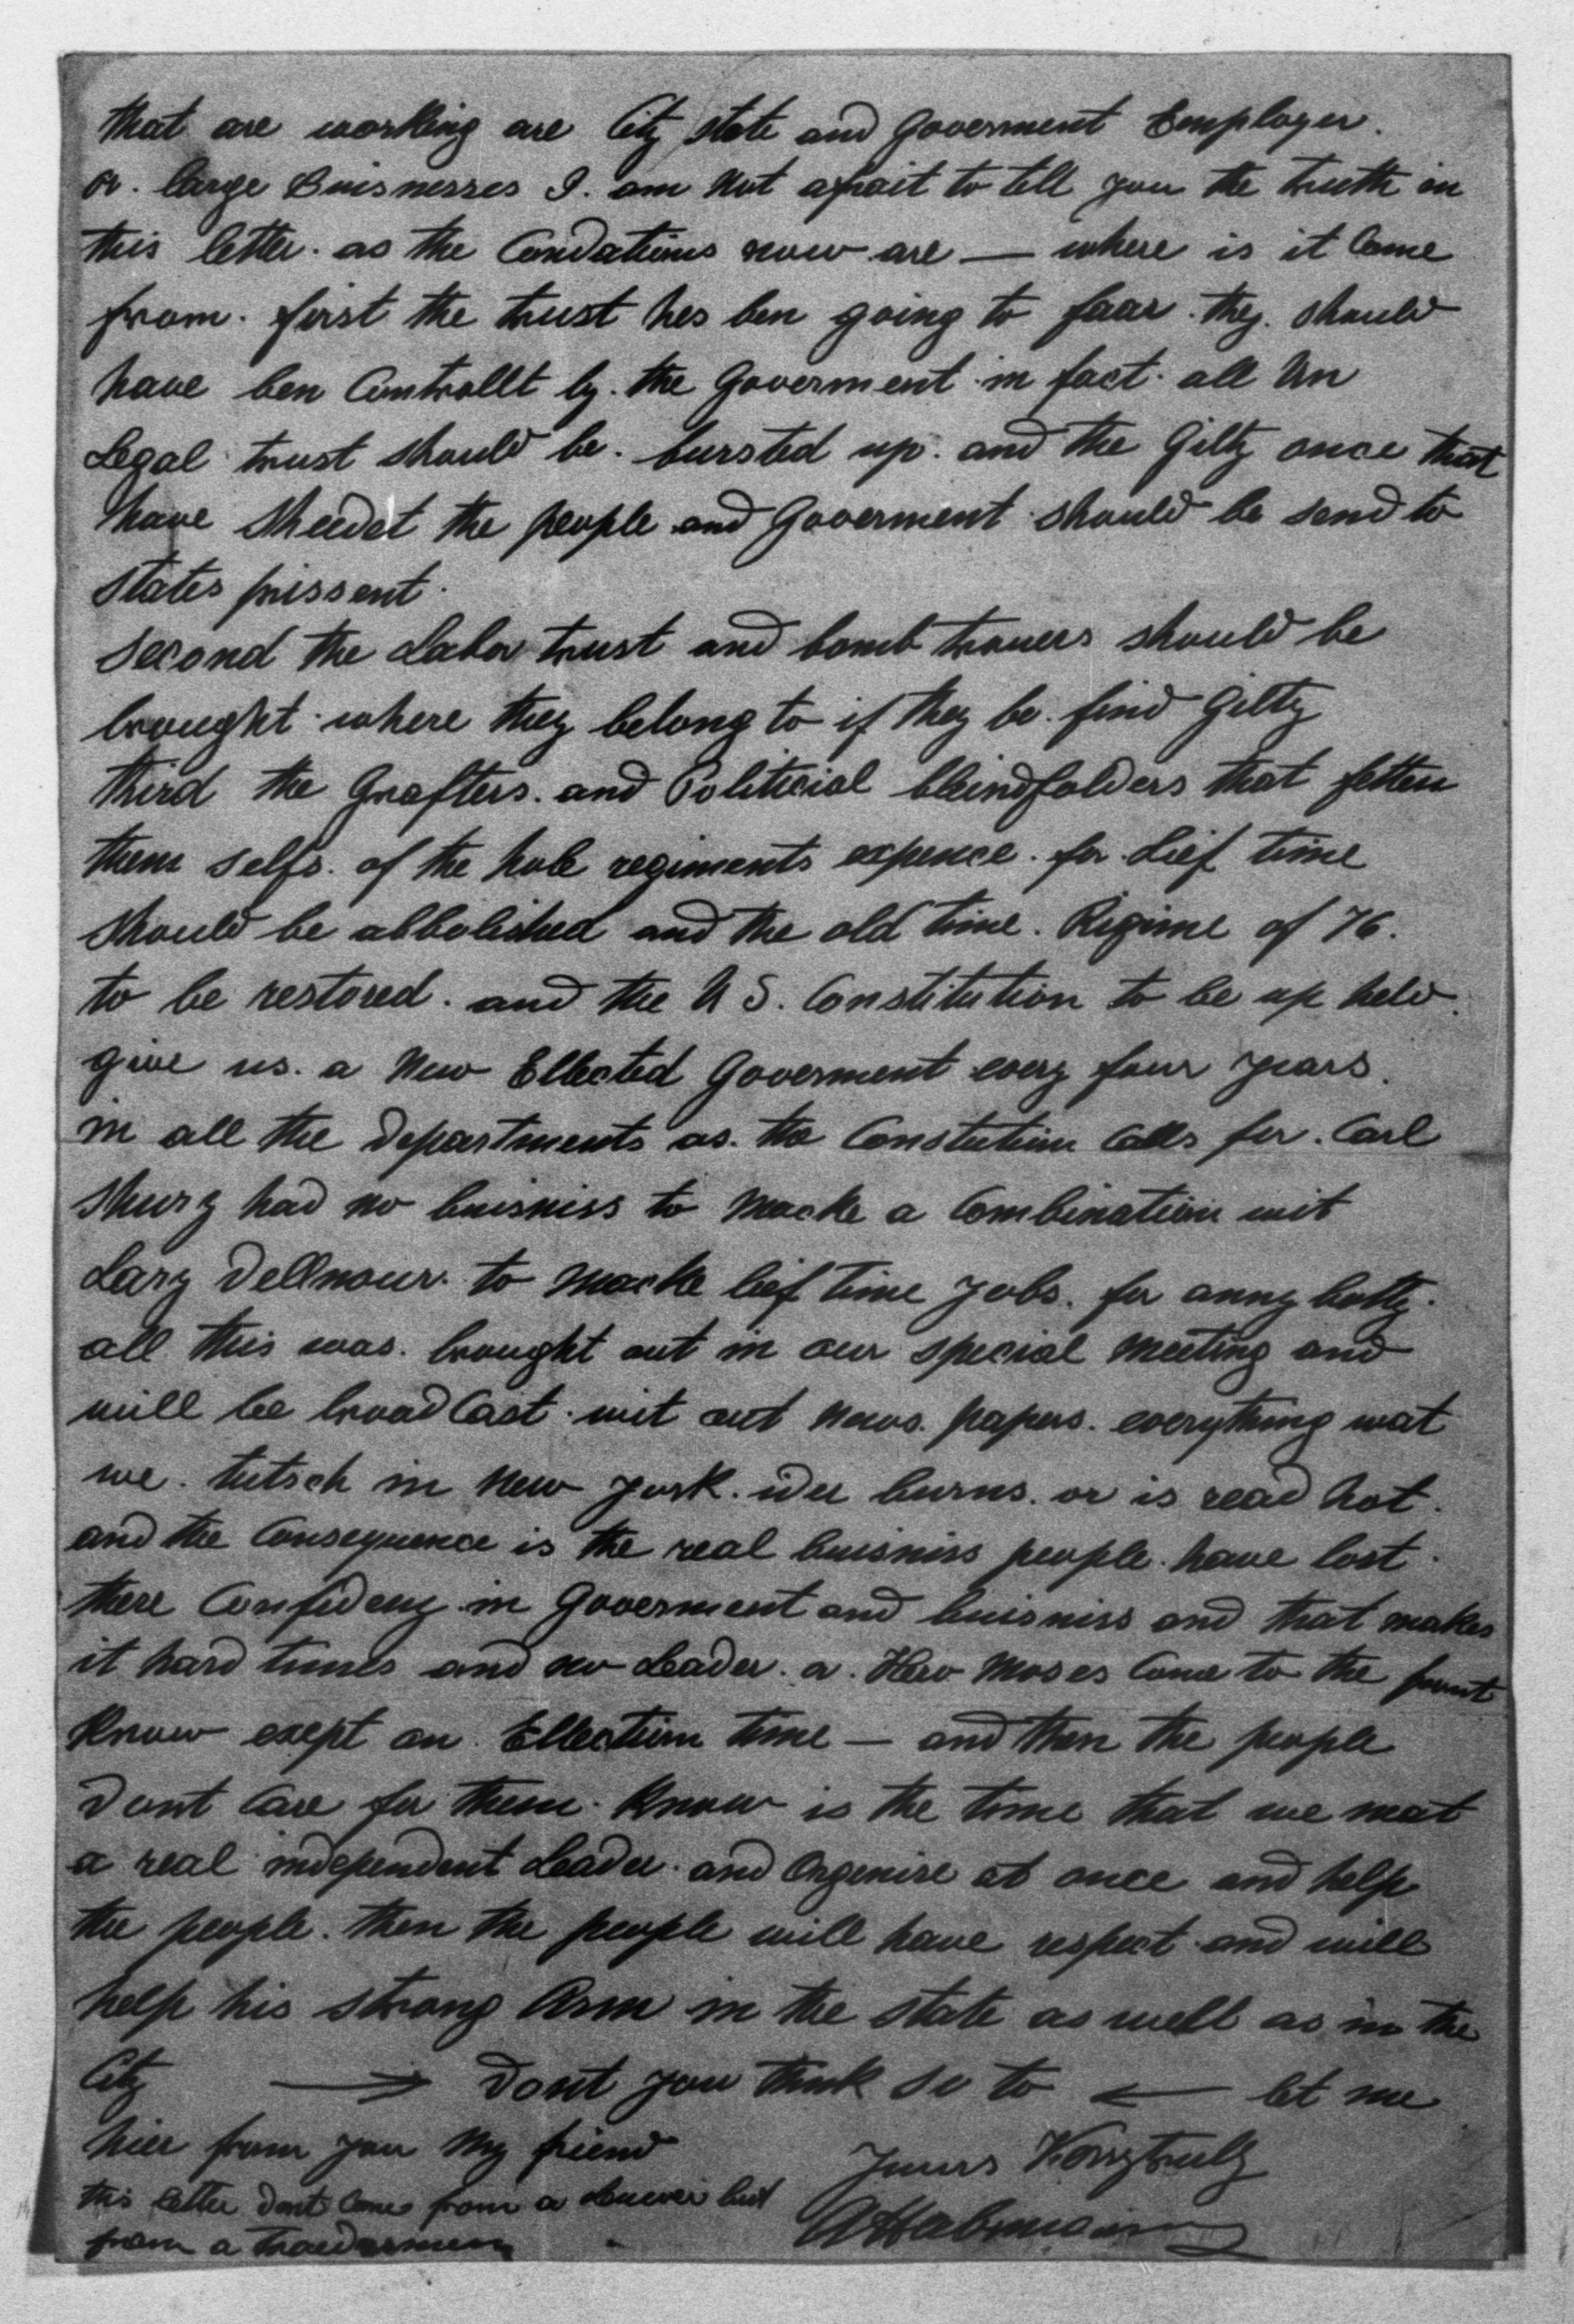 that are working are City state and Goverment Employer.
or. large Buisnesses I. am not afrait to tell you the truth in
this letter. as the Condations now are — where is it Come
from. first the trust hes ben going to faar. they. should
have ben Controllt by. the Goverment in fact. all Un
Legal trust should be. bursted up. and the Gilty once that
have the people and Goverment should be send to
states prissent.
Second the Labor trust and bomb trouers should be
brought where they belong to if they be. find Gilty
third the Grafters. and Politicial bleindfolders that fetten
them selfs. of the hole regiments expence. for Lief time
should be abbolished and the old time. Regime of 76.
to be restored. and the U S. Constitution to be up held.
give us. a New Ellected Goverment every four years.
in all the Departments as. the Constetution Calls for. Carl
Shurz had no buisniss to macke a Combination wit
Lary Dellmour. to macke lief time Jobs. for anny botty.
all this was. brought out in our special meeting and
will be broad Cast. wit out News. papers. everything wat
we. tutsch in New York. burns. or is read hot.
and the Consequence is the real buisniss people. have lost.
there Confideny in Goverment and buisniss and that makes
it hard times and no Leader. a. Moses Come to the
know exept on Ellection time — and then the people
Dont Care for them. Know is the time that we neat
a real independent Leader. and Orgenise at once and help
the people. then the people will have respect and will
help his strong Arm in the state as well as in the
City → Dont you think so to ← let me
hier from you My friend
Yours Verrytruly
this letter Dont Come from a but
from a